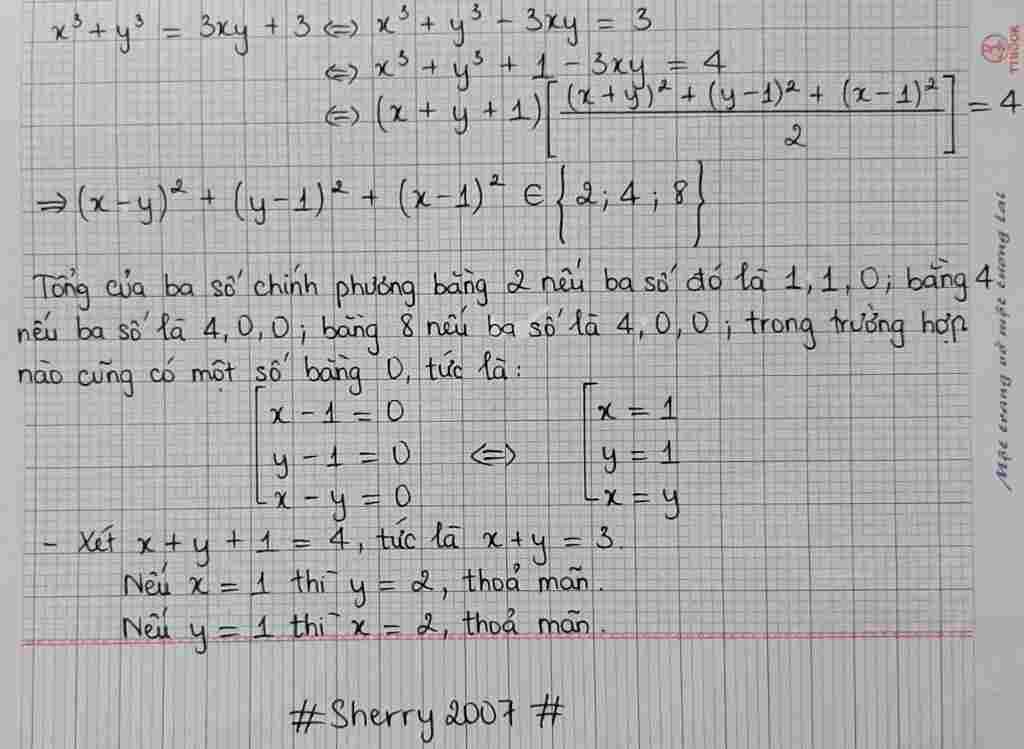 x³ + y³ = 3xy + 3 ⇔ x³ + y³ - 3xy = 3
⇔ x³ + y³ + 1 - 3xy = 4
⇔ (x + y + 1)[((x + y)² + (y - 1)² + (x - 1)²)/2] = 4
⇒ (x - y)² + (y - 1)² + (x - 1)² ∈ {2; 4; 8}
Tổng của ba số chính phương bằng 2 nếu ba số đó là 1, 1, 0; bằng 4
nếu ba số là 4, 0, 0; bằng 8 nếu ba số là 4, 0, 0; trong trường hợp
nào cũng có một số bằng 0, tức là:
[x - 1 = 0 [x = 1
y - 1 = 0 ⇔ y = 1
x - y = 0 x = y
- Xét x + y + 1 = 4, tức là x + y = 3.
Nếu x = 1 thì y = 2, thoả mãn.
Nếu y = 1 thì x = 2, thoả mãn.
#Sherry 2007 #
TINOOK